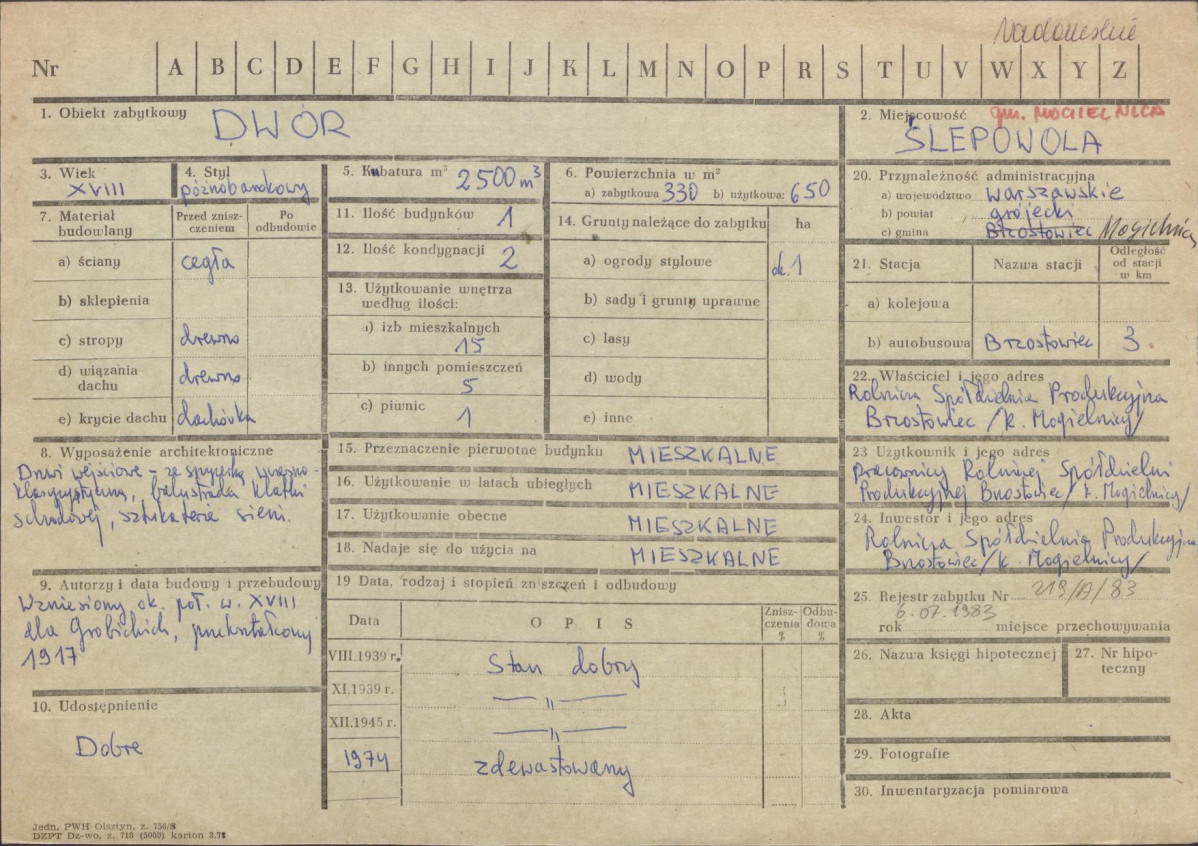 Nr A B C D E F G H I J K L M N O P R S T U V W X Y Z
1. Obiekt zabytkowy
DWÓR
2. Miejscowość gm. MOGIELNICA
ŚLEPOWOLA
3. Wiek
XVIII
4. Styl
późnobarokowy
5. Kubatura m³ 2500 m³
6. Powierzchnia w m²
a) zabytkowa 330 b) użytkowa: 650
7. Materiał budowlany
Przed zniszczeniem
Po odbudowie
a) ściany cegła
b) sklepienia
c) stropy drewno
d) wiązania dachu drewno
e) krycie dachu dachówka
11. Ilość budynków 1
12. Ilość kondygnacji 2
13. Użytkowanie wnętrza
według ilości:
a) izb mieszkalnych
15
b) innych pomieszczeń
5
c) piwnic 1
14. Grunty należące do zabytku ha
a) ogrody stylowe ok. 1
b) sady i grunty uprawne
c) lasy
d) wody
e) inne
20. Przynależność administracyjna
a) województwo warszawskie
b) powiat grójecki
c) gmina Brzostowiec Mogielnica
21. Stacja Nazwa stacji Odległość od stacji w km
a) kolejowa
b) autobusowa Brzostowiec 3
22. Właściciel i jego adres
Rolnicza Spółdzielnia Produkcyjna
Brzostowiec /k. Mogielnicy/
23 Użytkownik i jego adres
Pracownicy Rolniczej Spółdzielni
Produkcyjnej Brzostowiec /k. Mogielnicy/
24. Inwestor i jego adres
Rolnicza Spółdzielnia Produkcyjna
Brzostowiec /k. Mogielnicy/
8. Wyposażenie architektoniczne
Drzwi wejściowe – ze snycerką
klasycystyczną, balustrada klatki
schodowej, sztukateria sieni.
15. Przeznaczenie pierwotne budynku MIESZKALNE
16. Użytkowanie w latach ubiegłych MIESZKALNE
17. Użytkowanie obecne MIESZKALNE
18. Nadaje się do użycia na MIESZKALNE
9. Autorzy i data budowy i przebudowy
Wzniesiony ok. poł. w. XVIII
dla Grobickich, przekształcony
1917
10. Udostępnienie
Dobre
19 Data, rodzaj i stopień zniszczeń i odbudowy
Data OPIS Zniszczenia % Odbudowa %
VIII.1939 r. Stan dobry
XI.1939 r. — " —
XII.1945 r. — " —
1974 zdewastowany
25. Rejestr zabytku Nr 219/A/83
6.07.1983
rok miejsce przechowywania
26. Nazwa księgi hipotecznej
27. Nr hipoteczny
28. Akta
29. Fotografie
30. Inwentaryzacja pomiarowa
Jedn. PWH Olsztyn, z. 756/S
DZPT Dz-wo, z. 713 (5000) karton 3.73